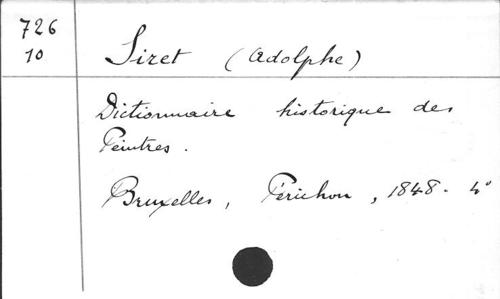 726
10
Siret (Adolphe)
Dictionnaire historique des
Peintres.
Bruxelles, Périchon, 1848. 4°